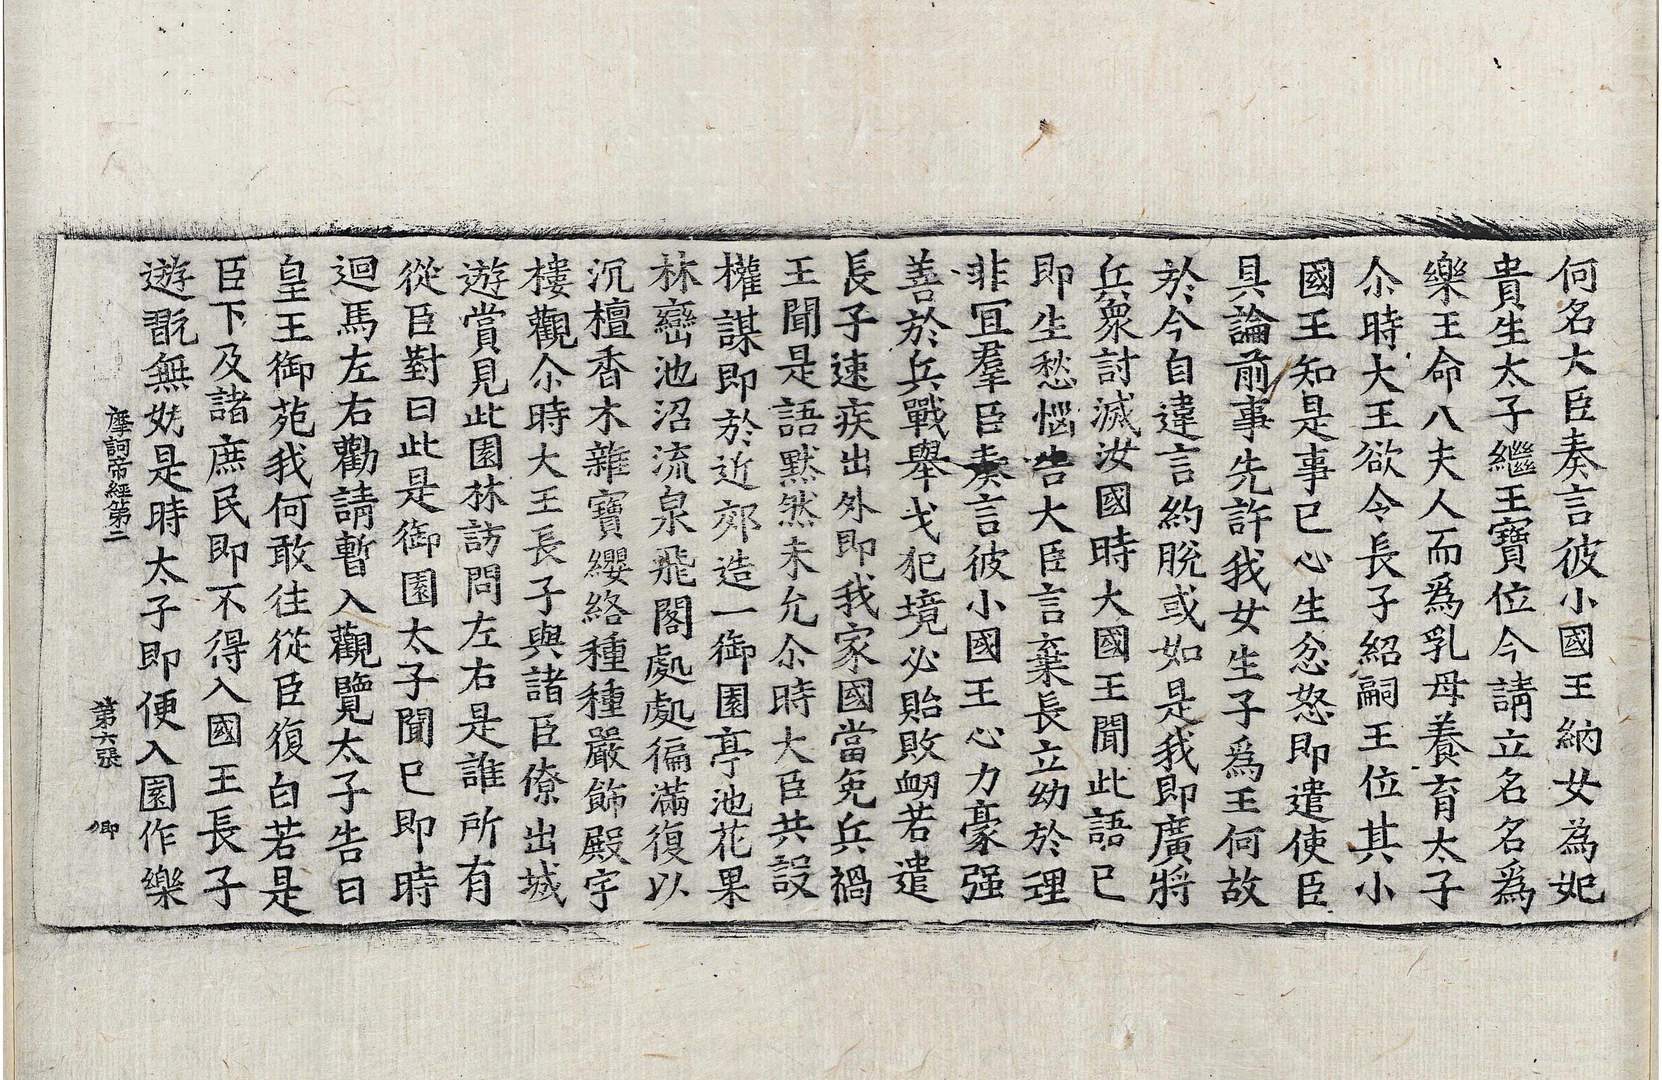 何名大臣奏言彼小國王納女為妃
貴生太子繼王寶位今請立名名爲
樂王命八夫人而爲乳母養育太子
尒時大王欲令長子紹嗣王位其小
國王知是事已心生忿怒即遣使臣
具論前事先許我女生子爲王何故
於今自違言約脫或如是我即廣將
兵衆討滅汝國時大國王聞此語已
即生愁惱告大臣言棄長立幼於理
非冝羣臣奏言彼小國王心力豪强
善於兵戰舉戈犯境必貽敗衂若遣
長子速疾出外即我家國當免兵禍
王聞是語默然未允尒時大臣共設
權謀即於近郊造一御園亭池花果
林巒池沼流泉飛閣處處徧滿復以
沉檀香木雜寶纓絡種種嚴飾殿宇
樓觀尒時大王長子與諸臣僚出城
遊賞見此園林訪問左右是誰所有
從臣對曰此是御園太子聞已即時
迴馬左右勸請暫入觀覽太子告曰
皇王御苑我何敢往從臣復白若是
臣下及諸庶民即不得入國王長子
遊翫無妨是時太子即便入園作樂
摩訶帝經第二 第六張 卿